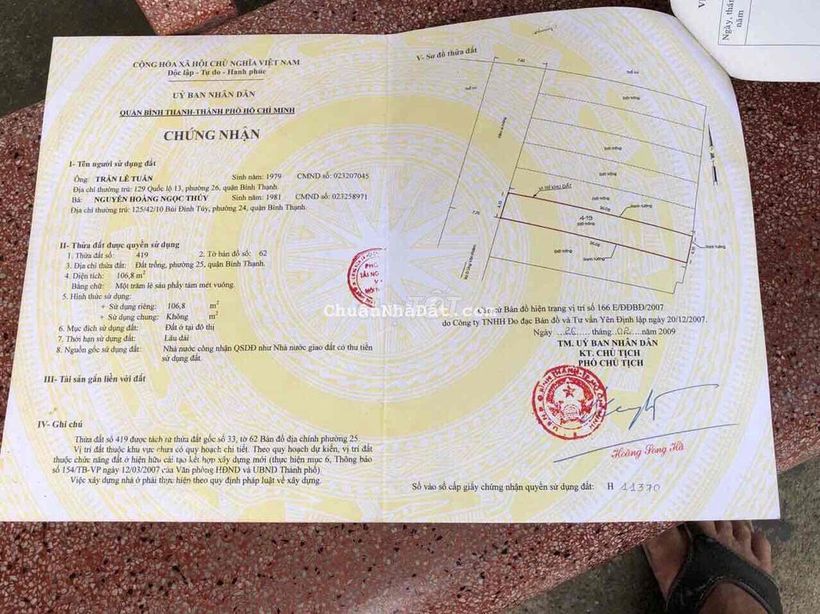 CỘNG HÒA XÃ HỘI CHỦ NGHĨA VIỆT NAM
Độc lập - Tự do - Hạnh phúc
UỶ BAN NHÂN DÂN
QUẬN BÌNH THẠNH-THÀNH PHỐ HỒ CHÍ MINH
CHỨNG NHẬN
I- Tên người sử dụng đất
Ông: TRẦN LÊ TUẤN Sinh năm: 1979 CMND số: 023207045
Địa chỉ thường trú: 129 Quốc lộ 13, phường 26, quận Bình Thạnh.
Bà: NGUYỄN HOÀNG NGỌC THÚY Sinh năm: 1981 CMND số: 023258971
Địa chỉ thường trú: 125/42/10 Bùi Đình Túy, phường 24, quận Bình Thạnh.
II- Thửa đất được quyền sử dụng
1. Thửa đất số: 419 2. Tờ bản đồ số: 62
3. Địa chỉ thửa đất: Đất trống, phường 25, quận Bình Thạnh.
4. Diện tích: 106,8 m²
Bằng chữ: Một trăm lẻ sáu phẩy tám mét vuông.
5. Hình thức sử dụng:
+ Sử dụng riêng: 106,8 m²
+ Sử dụng chung: Không m²
6. Mục đích sử dụng: Đất ở tại đô thị
7. Thời hạn sử dụng: Lâu dài
8. Nguồn gốc sử dụng: Nhà nước công nhận QSDĐ như Nhà nước giao đất có thu tiền
sử dụng đất.
III- Tài sản gắn liền với đất
IV- Ghi chú
Thửa đất số 419 được tách từ thửa đất gốc số 33, tờ 62 Bản đồ địa chính phường 25.
Vị trí đất thuộc khu vực chưa có quy hoạch chi tiết. Theo quy hoạch dự kiến, vị trí đất
thuộc chức năng đất ở hiện hữu cải tạo kết hợp xây dựng mới (thực hiện mục 6, Thông báo
số 154/TB-VP ngày 12/03/2007 của Văn phòng HĐND và UBND Thành phố).
Việc xây dựng nhà ở phải thực hiện theo quy định pháp luật về xây dựng.
V- Sơ đồ thửa đất
VỊ TRÍ KHU ĐẤT
419
Đất trống
ChuanNhaDat.com
Bản đồ hiện trạng vị trí số 166 E/ĐĐBĐ/2007
do Công ty TNHH Đo đạc Bản đồ và Tư vấn Yên Định lập ngày 20/12/2007.
Ngày 26 tháng 02 năm 2009
TM. UỶ BAN NHÂN DÂN
KT. CHỦ TỊCH
PHÓ CHỦ TỊCH
Hoàng Song Hà
Số vào sổ cấp giấy chứng nhận quyền sử dụng đất: H 11370
Ngày, thá
năm